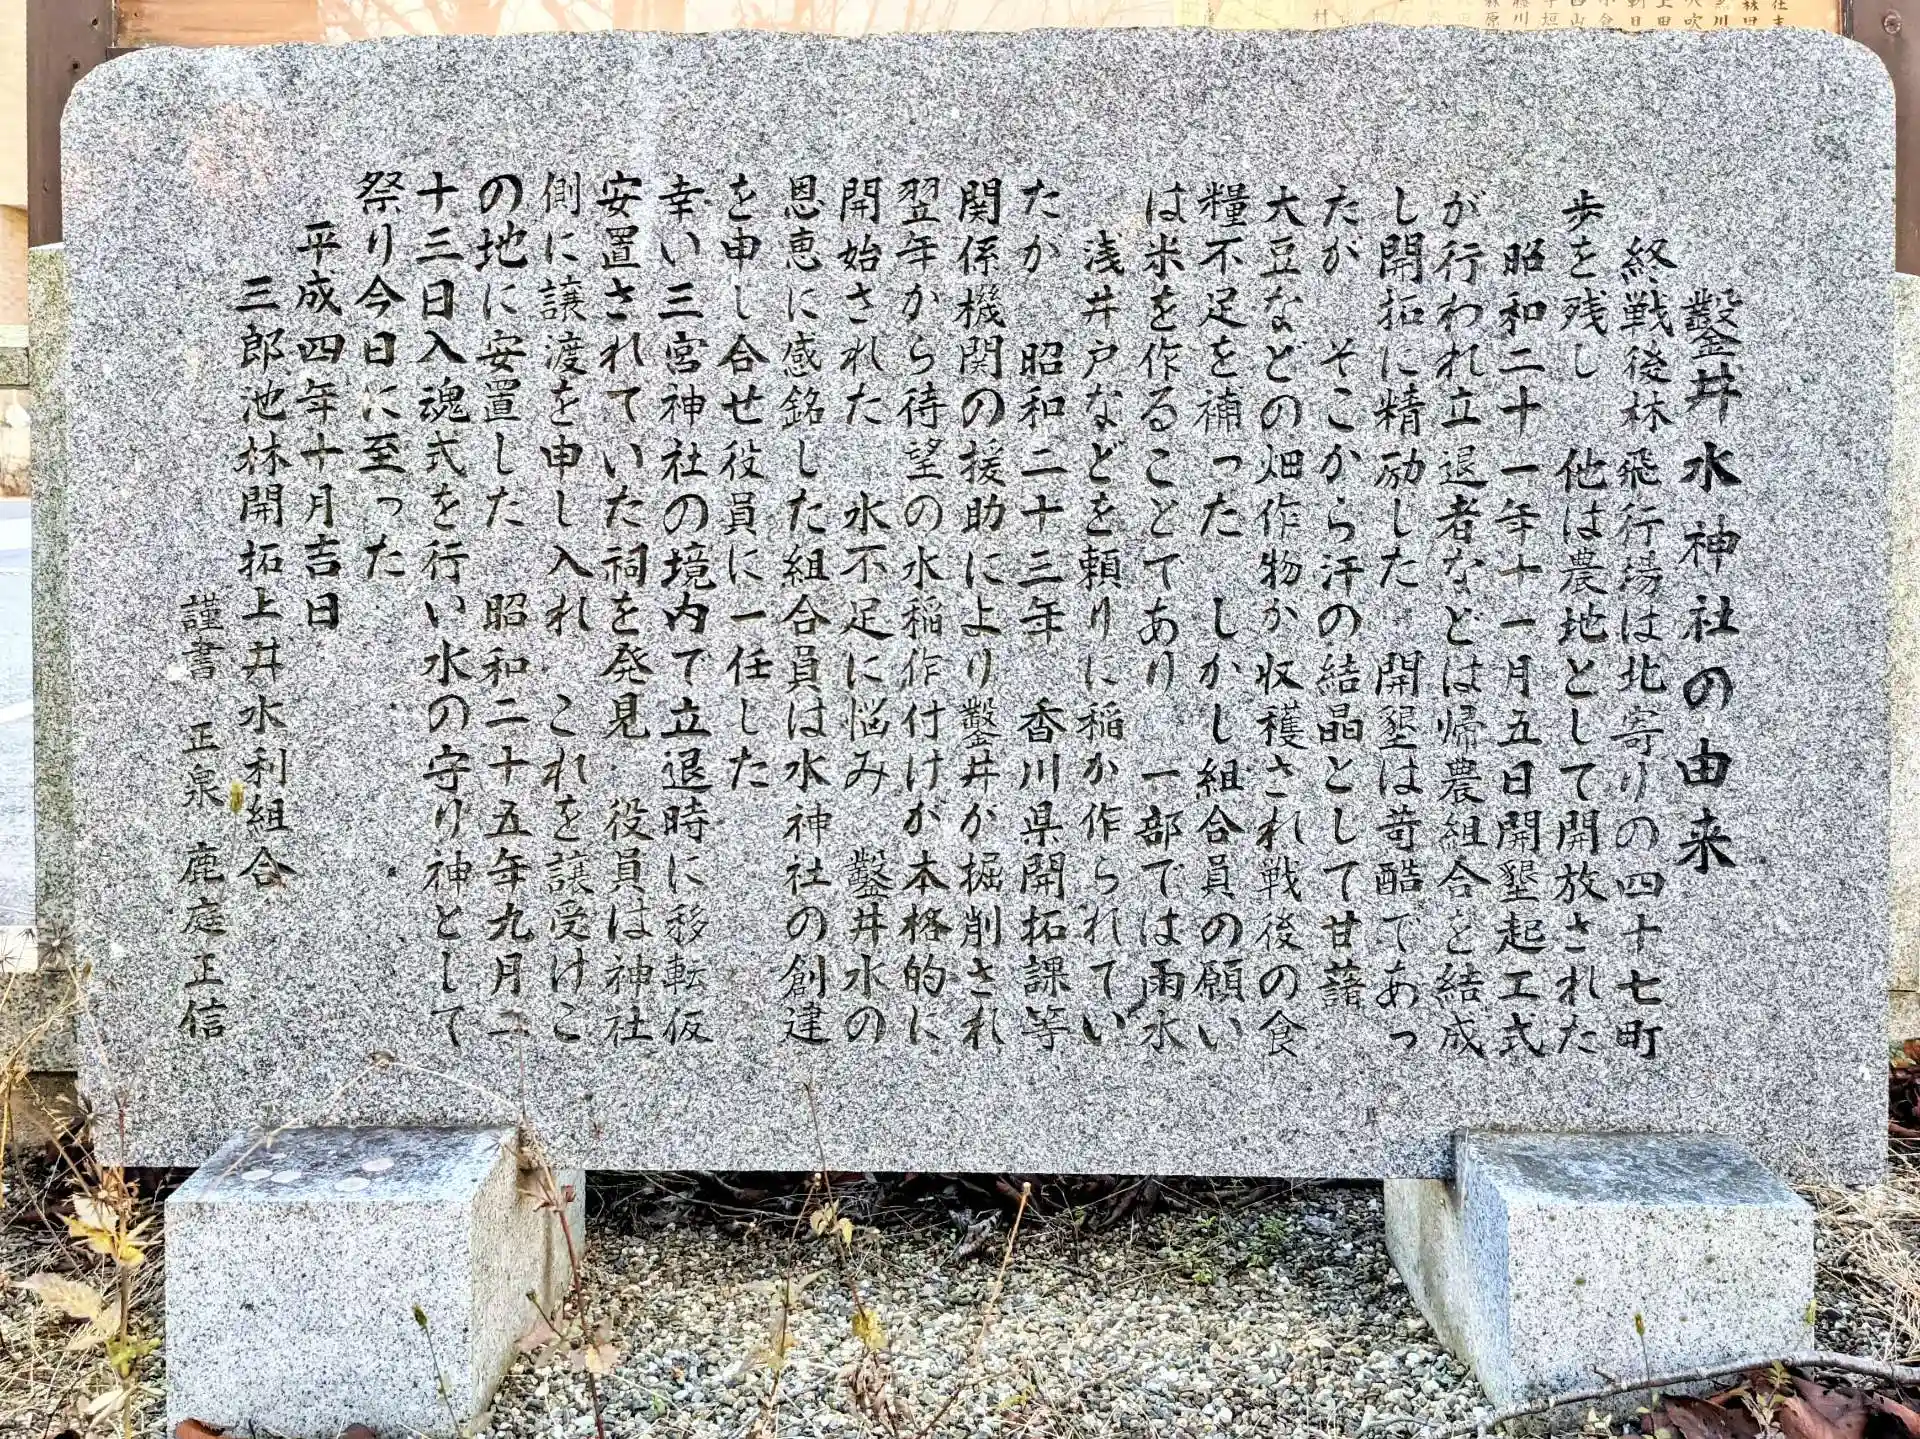 鑿井水神社の由来
終戦後林飛行場は北寄りの四十七町
歩を残し 他は農地として開放された
昭和二十一年十一月五日開墾起工式
が行われ立退者などは帰農組合を結成
し開拓に精励した 開墾は苛酷であっ
たが そこから汗の結晶として甘藷
大豆などの畑作物か収穫され戦後の食
糧不足を補った しかし組合員の願い
は米を作ることであり 一部では雨水
浅井戸などを頼りに稲か作られてい
たか 昭和二十三年 香川県開拓課等
関係機関の援助により鑿井が掘削され
翌年から待望の水稲作付けが本格的に
開始された 水不足に悩み 鑿井水の
恩恵に感銘した組合員は水神社の創建
を申し合せ役員に一任した
幸い三宮神社の境内で立退時に移転仮
安置されていた祠を発見 役員は神社
側に譲渡を申し入れ これを譲受けこ
の地に安置した 昭和二十五年九月二
十三日入魂式を行い水の守り神として
祭り今日に至った
平成四年十月吉日
三郎池林開拓上井水利組合
謹書 正泉 鹿庭正信